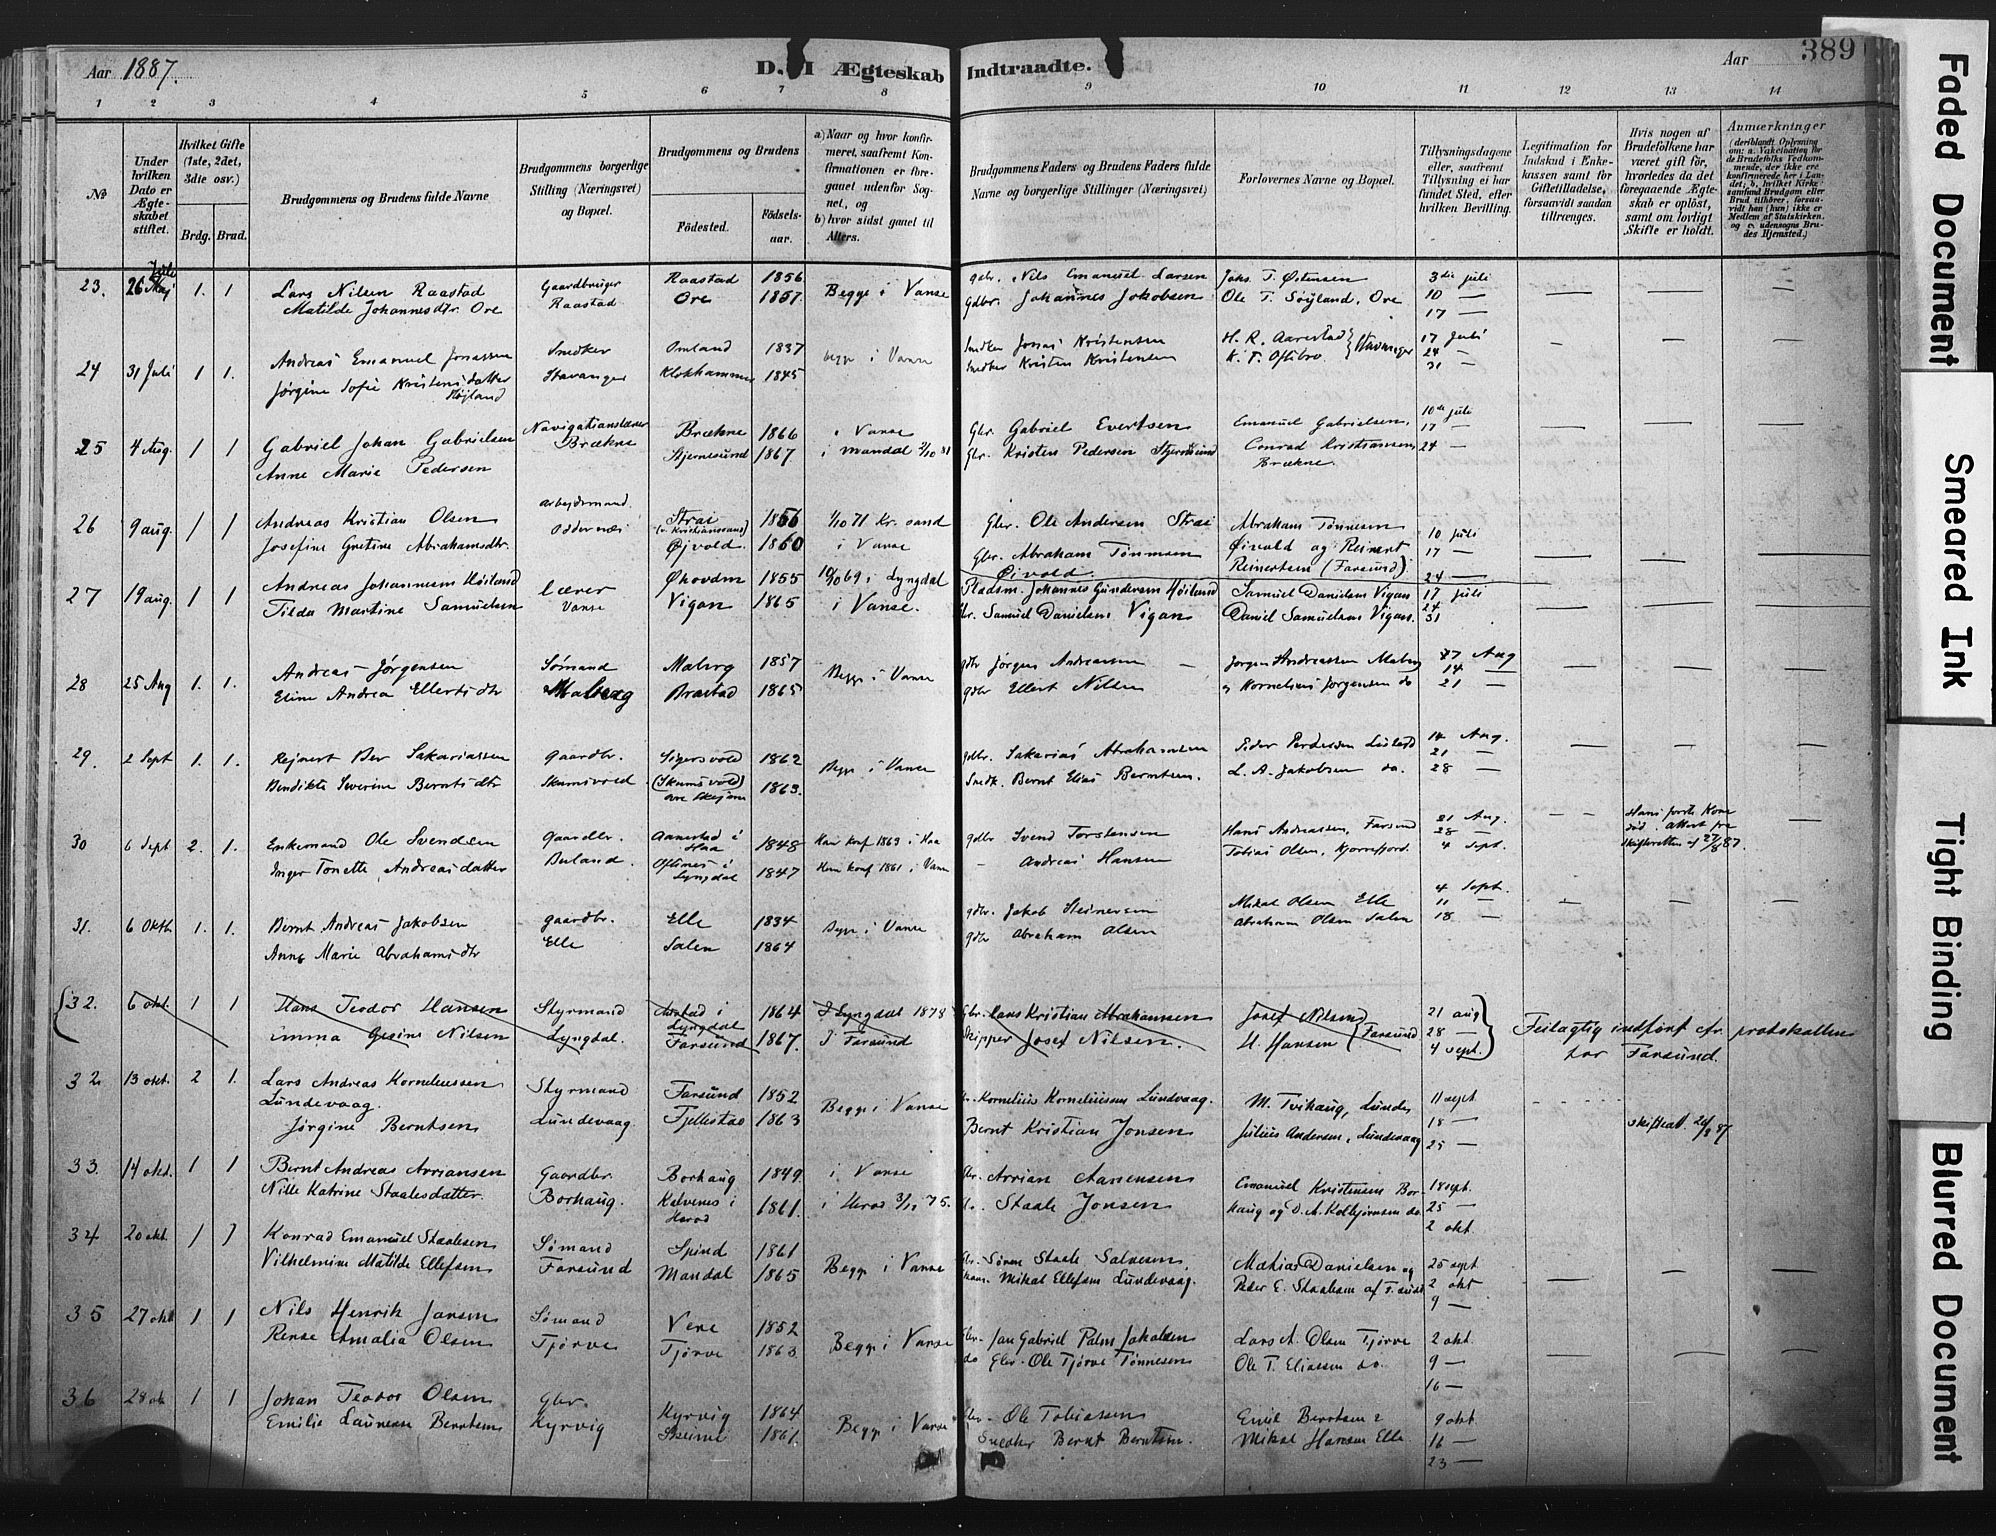 Aar 1887.
D. I Ægteskab Indtraadte.
Aar 389
1 2 3 4 5 6 7 8 9 10 11 12 13 14
No
Under hvilken Dato er Ægteskabet stiftet.
Hvilket Gifte (1ste, 2det, 3die osv.)
Brdg. Brud.
Brudgommens og Brudens fulde Navne
Brudgommens borgerlige Stilling (Næringsvei) og Bopæl.
Brudgommens og Brudens
Fødested. Fødselsaar.
a) Naar og hvor konfirmeret, saafremt Konfirmationen er foregaaet udenfor Sognet, og
b) hvor sidst gaaet til Alters.
Brudgommens Faders og Brudens Faders fulde Navne og borgerlige Stillinger (Næringsvei)
Forlovernes Navne og Bopæl.
Tillysningsdagene eller, saafremt Tillysning ei har fundet Sted, efter hvilken Bevilling.
Legitimation for Indskud i Enkekassen samt for Giftetilladelse, forsaavidt saadan tiltrænges.
Hvis nogen af Brudefolkene har været gift før, hvorledes da det foregaaende Ægteskab er opløst, samt om lovligt Skifte er holdt.
Anmærkninger (deriblandt Oplysning om: a. Vakcination for de Brudefolks Vedkommende, der ikke ere konfirmerede her i Landet; b. hvilket Kirkesamfund Brudgom eller Brud tilhører, forsaavidt han (hun) ikke er Medlem af Statskirken, og c. udensogns Brudes Hjemsted.)
23. 26 Juli 1. 1 Lars Nilsen Raastad Gaardbruger Raastad 1856 Begge i Vanse gdbr. Nils Emanuel Larsen Joks. T. Østensen 3die juli
Matilde Johannesdtr. Ore Raastad Ore 1857 Gdbr. Johannes Jakobsen Ole T. Søyland, Ore 10 —
17 —
24 31 Juli 1 1. Andreas Emanuel Jonassen Snedker Omland 1837 begge i Vanse Snedker Jonas Kristensen H. R. Aarestad Stavanger 17 Juli
Jørgine Sofie Kristensdatter Stavanger Klokhammer 1845 Snedker Kristen Kristensen K. T. Oftebro 24 —
Højland 31 —
25 4 Aug. 1 1 Gabriel Johan Gabrielsen Navigationslærer Brækne 1866 i Vanse Gbr. Gabriel Evertsen Emanuel Gabrielsen, 10de juli
Anne Marie Pedersen Brækne Stjernesund 1867 i Mandal 2/10 81 Gbr. Kristen Pedersen Stjernesund Conrad Kristiansen, 17 —
Brækne. 24 —
26 9 aug. 1 1 Andreas Kristian Olsen arbejdsmand Strai (v. Kristianssand) 1856 1/10 71 Kr. sand Gbr. Ole Andersen Strai Abraham Tønnesen 10 juli
Josefine Gretine Abrahamsdtr. Oddernæs Øjvold. 1860 i Vanse Gbr. Abraham Tønnesen Øivold Øivold og Reinert 17 —
Reinertsen (Farsund) 24 —
27 19 aug. 1 1 Andreas Johannesen Høiland Lærer 1855 10/10 69 i Lyngdal Pladsm. Johannes Gundersen Høiland Samuel Danielsen Vigan 17 juli
Tilda Martine Samuelsen Vanse Vigan 1865 i Vanse. Gbr. Samuel Danielsen Vigan Daniel Samuelsen Vigan. 24
31
28 25 Aug 1. 1. Andreas Jørgensen Sømand Malvog 1857 Begge i Vanse gdbr Jørgen Andreassen Jørgen Andreassen Malvog 7 Aug
Eline Andrea Ellertsdtr Brastad 1865 gdbr Ellert Nilsen og Kornelius Jørgensen do 14 —
21 —
29. 2 Sept 1. 1. Rejnert Ber Sakariassen Gaardbr. Sigersvold 1862 Begge i Vanse gdbr. Sakarias Abrahamsen Peder Pedersen 14 Aug.
Bendikte Severine Berntsdtr Skumsvold (Skumsvold) 1863. Snedk. Bernt Elias Berntsen. L. A. Jakobsen do. 21 —
28 —
30 6 Sept 2. 1. Enkemand Ole Svendsen Gaardbr. Aanestad i Haa 1848 Han konf 1863 i Haa gdbr Svend Torstensen Hans Andreassen, Farsund 21 Aug. Hans første Kone død. Attest fra skifteretten af 27/8 87.
Inger Tonette Andreasdatter Buland. Oftenes i Lyngdal 1847 Hun konf 1861 i Vanse — Andreas Hansen Tobias Olsen, 28 —
4 Sept.
31. 6 Oktb 1. 1. Bernt Andreas Jakobsen gaardbr. Elle 1834 Begge i Vanse gdbr. Jakob Steinersen Mikal Olsen Elle 4 Sept.
Anne Marie Abrahamsdtr Elle Salen 1864 gdbr Abraham Olsen Abraham Olsen Salen 11 —
18 —
32. 6 okt. 1 1 Hans Teodor Hansen Styrmand i Lyngdal 1864 I Lyngdal 1878 Gbr. Lars Kristian Abrahamsen Josef Nilsen Farsund 21 aug Feilagtig indført fr. protokollen for Farsund.
Emma Gesine Nilsen Lyngdal. Farsund 1867. I Farsund Skipper Josef Nilsen. H. Hansen 28 —
4 sept.
32 13 okt. 2 1. Lars Andreas Korneliussen Lundevaag. Styrmand Farsund 1852 Begge i Vanse Kornelius Korneliussen Lundvaag. M. Tvihaug, Lunde, 11 sept
Jørgine Berntsen Lundevaag Fjellestad 1863 Bernt Kristian Jonsen Julius Andersen, Lundevaag 18 — skifteatt 26/8 87
25 —
33. 14 okt. 1 1 Bernt Andreas Arriansen Gaardbr Borhaug 1849. i Vanse Gbr. Arrian Aanensen Emanuel Kristensen Bor- 18 sept.
Nille Katrine Staalesdatter. Borhaug. Kalvenes i Herad 1861. i Herad 3/10 75. Staale Jonsen haug og O. A. Kolbjørnsen do. 25 —
2 okt
34 20 okt. 1 1 Konrad Emanuel Staalesen Sømand Spind 1861 Begge i Vanse Gbr. Søren Staale Salvesen Matias Danielsen og 25 sept
Vilhelmine Matilde Ellefsen Farsund Mandal 1865 Mikal Ellefsen Lundevaag. Peder E. Staalesen af F.sund 2 okt
9 —
35 27 okt 1 1 Nils Henrik Jansen Sømand Vere 1852 Begge i Vanse Gbr. Jan Gabriel Palm Jakobsen Lars A. Olsen Tjørve 2 okt.
Rense Amalia Olsen Tjørve Tjørve 1863 do Gbr. Ole Tjørve Tønnesen Ole T. Eliassen do. 9 —
16 —
36 28 ok 1 1 Johan Teodor Olsen Gbr. Kyrvig 1864 Begge i Vanse Gbr. Ole Tobiassen Emil Berntsen 9 okt
Emilie Laurense Berntsen Kyrvig Skeime 1861. Snedker Bernt Berntsen. Mikal Hansen Elle 16 —
23 —
Faded Document
Smeared Ink
Tight Binding
Blurred Document